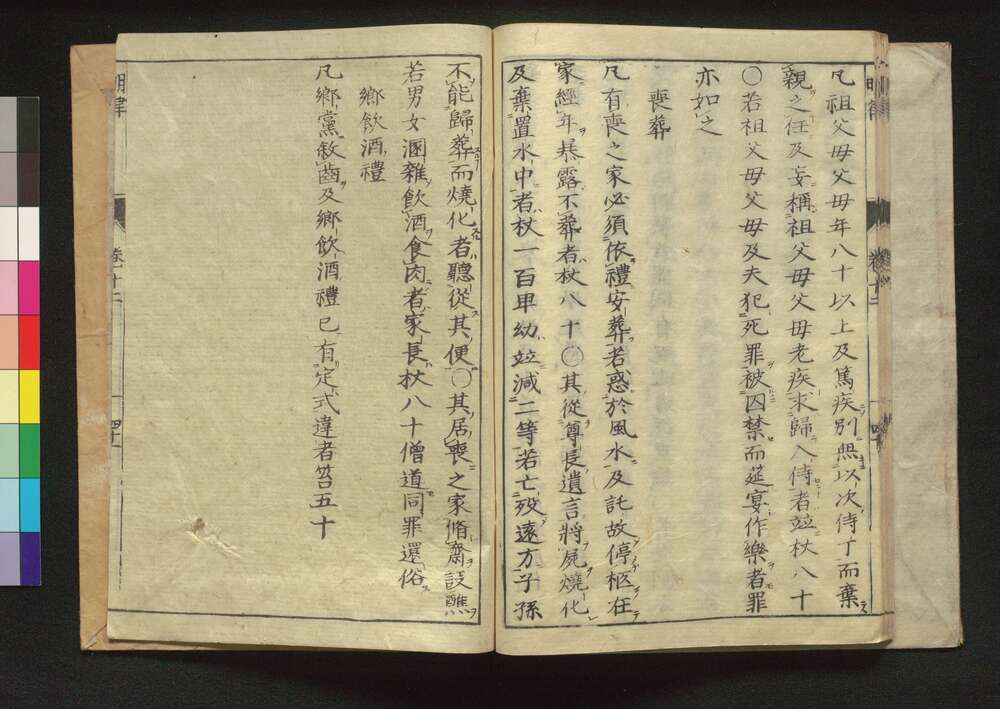 凡祖父母父母年八十以上及篤疾別無以次侍丁而棄
親之任及妄稱祖父母父母老疾求歸入侍者並杖八十
〇若祖父母父母及夫犯死罪被囚禁而莚宴作樂者罪
亦如之
喪葬
凡有喪之家必須依禮安葬若惑於風水及託故停柩在
家經年暴露不葬者杖八十〇其從尊長遺言將屍燒化
及棄置水中者杖一百卑幼並減二等若亡歿遠方子孫
不能歸葬而燒化者聽從其便〇其居喪之家脩齋設醮
若男女溷雜飲酒食肉者家長杖八十僧道同罪還俗
鄉飲酒禮
凡鄉黨敘齒及鄉飲酒禮已有定式違者笞五十
明律
卷十二